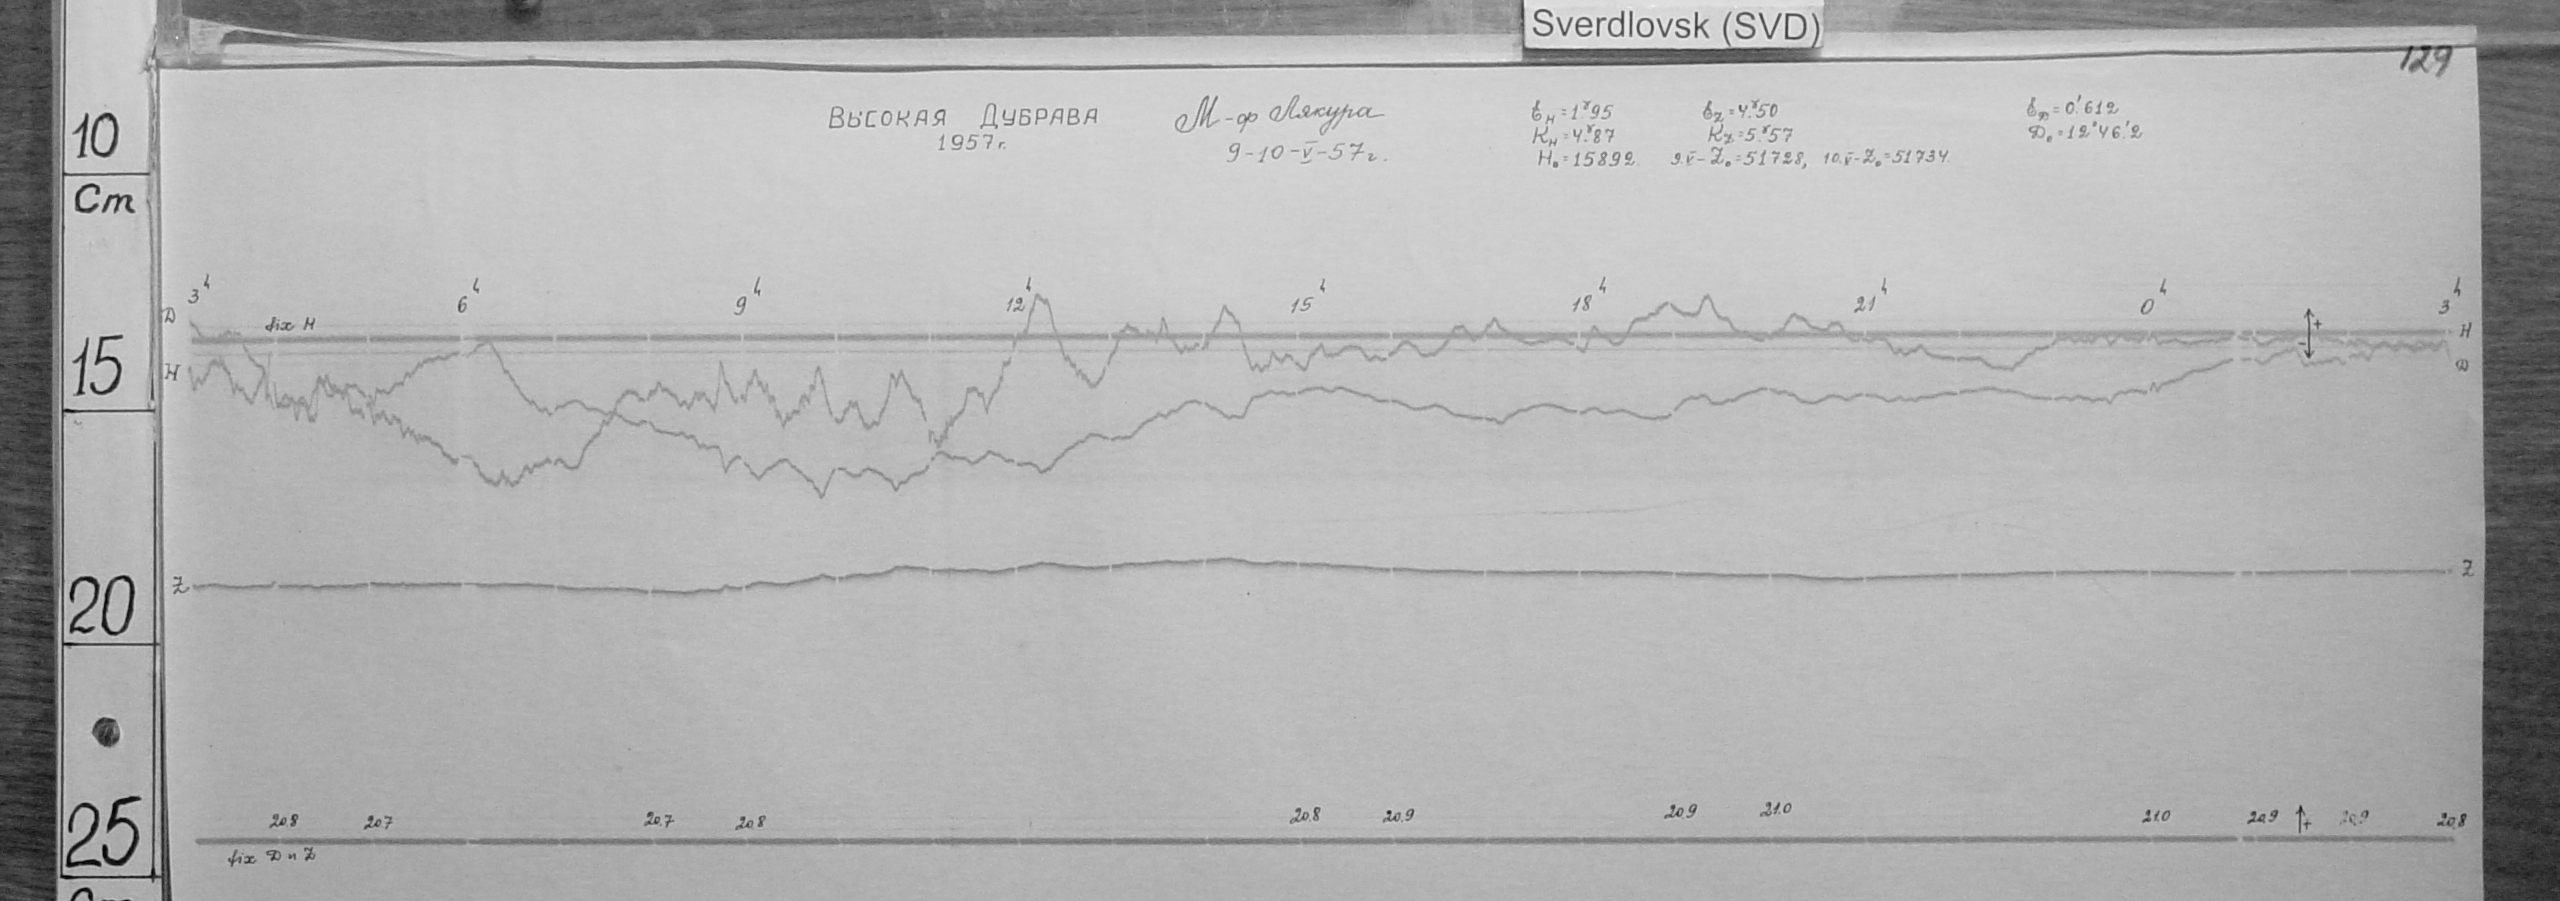 Sverdlovsk (SVD)
129
10
Cm
15
20
25
Cm
Высокая Дубрава
1957г.
М-ф Лякура
9-10-V-57г.
ε_H=1.ᵞ95
K_H=4.ᵞ87
H₀=15892.
ε_Z=4.ᵞ50
K_Z=5.ᵞ57
9.V-Z₀=51728, 10.V-Z₀=51734.
ε_D=0'.612
D₀=12°46'.2
3ʰ 6ʰ 9ʰ 12ʰ 15ʰ 18ʰ 21ʰ 0ʰ 3ʰ
D
fix H
+
-
H
H
D
Z
Z
20.8 20.7 20.7 20.8 20.8 20.9 20.9 21.0 21.0 20.9 + 20.9 20.8
fix D и Z